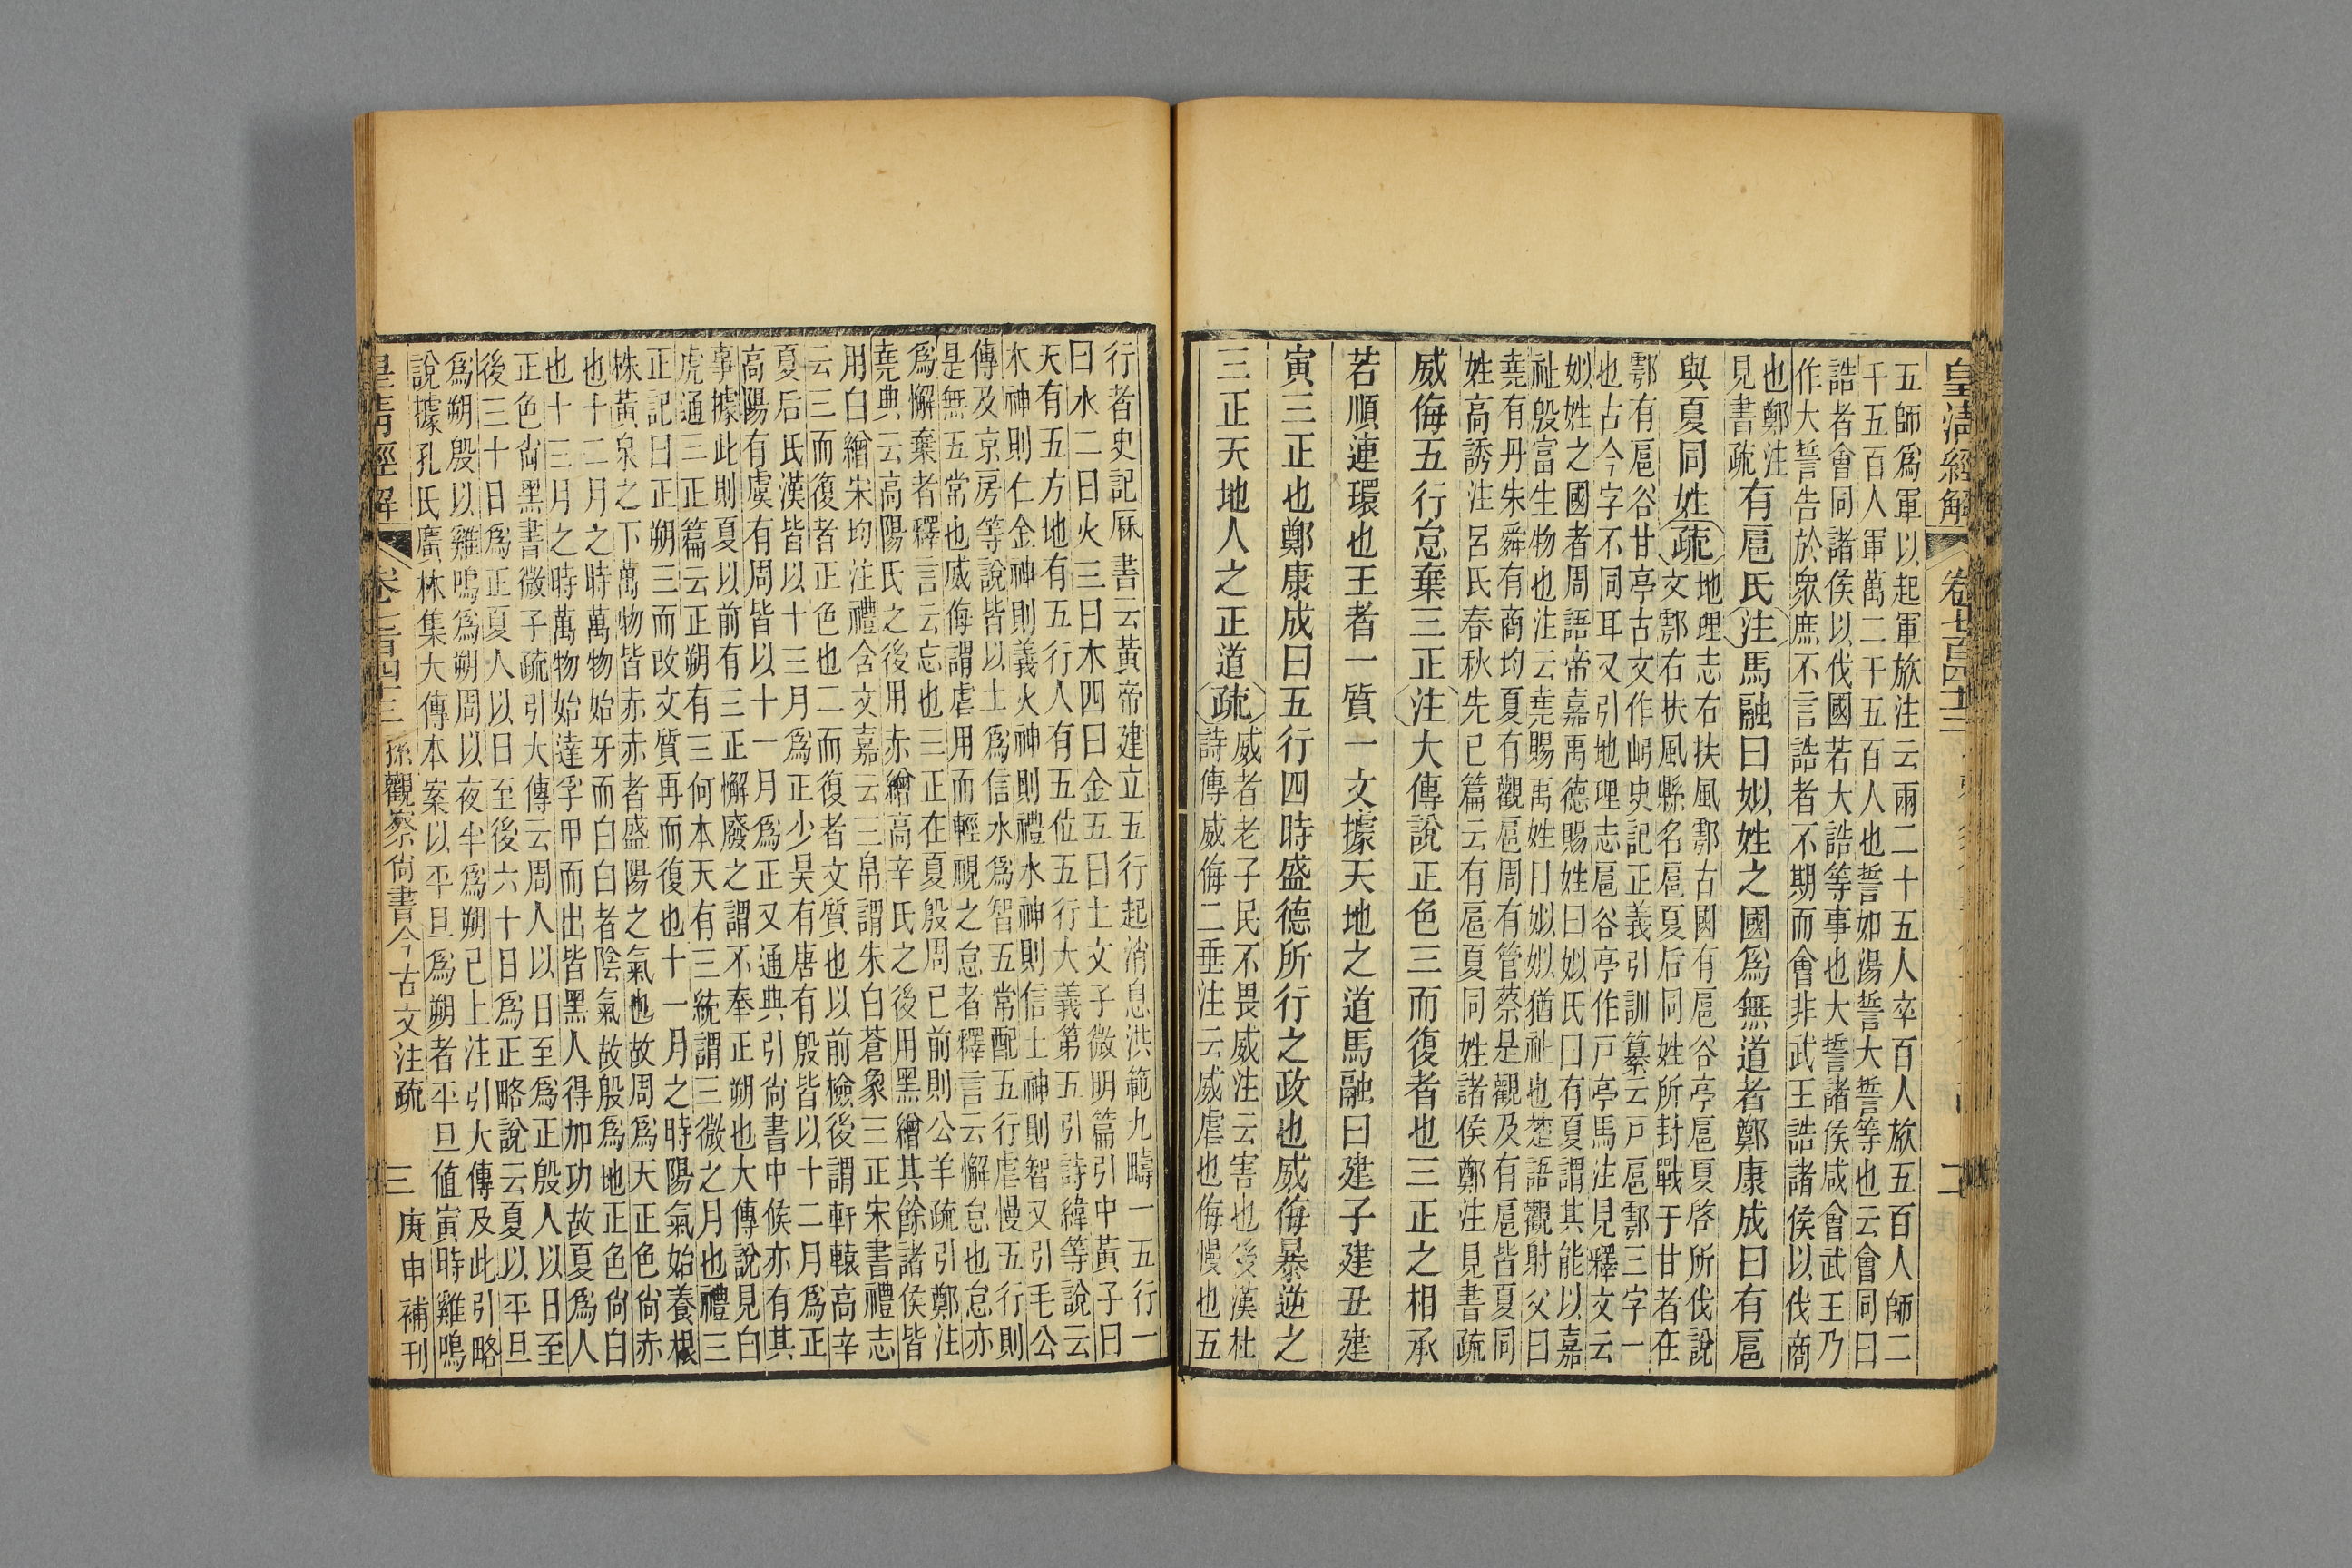 皇清經解
卷七百四十三
二
五師爲軍以起軍旅注云兩二十五人卒百人旅五百人師二
千五百人軍萬二千五百人也誓如湯誓大誓等也云會同曰
誥者會同諸侯以伐國若大誥等事也大誓諸侯咸會武王乃
作大誓告於衆庶不言誥者不期而會非武王誥諸侯以伐商
也鄭注
見書疏
有扈氏注馬融曰姒姓之國爲無道者鄭康成曰有扈
與夏同姓疏
地理志右扶風鄠古國有扈谷亭扈夏啓所伐說
文鄠右扶風縣名扈夏后同姓所封戰于甘者在
鄠有扈谷甘亭古文作𡵁史記正義引訓纂云戸扈鄠三字一
也古今字不同耳又引地理志扈谷亭作戸亭馬注見釋文云
姒姓之國者周語帝嘉禹德賜姓曰姒氏曰有夏謂其能以嘉
祉殷富生物也注云堯賜禹姓曰姒姒猶祉也楚語觀射父曰
堯有丹朱舜有商均夏有觀扈周有管蔡是觀及有扈皆夏同
姓高誘注呂氏春秋先己篇云有扈夏同姓諸侯鄭注見書疏
威侮五行怠棄三正注大傳說正色三而復者也三正之相承
若順連環也王者一質一文據天地之道馬融曰建子建丑建
寅三正也鄭康成曰五行四時盛德所行之政也威侮暴逆之
三正天地人之正道疏
威者老子民不畏威注云害也後漢杜
詩傳威侮二垂注云威虐也侮慢也五
行者史記厤書云黃帝建立五行起消息洪範九疇一五行一
曰水二曰火三曰木四曰金五曰土文子微明篇引中黃子曰
天有五方地有五行人有五位五行大義第五引詩緯等說云
木神則仁金神則義火神則禮水神則信土神則智又引毛公
傳及京房等說皆以土爲信水爲智五常配五行虐慢五行則
是無五常也威侮謂虐用而輕視之怠者釋言云懈怠也怠亦
爲懈棄者釋言云忘也三正在夏殷周已前則公羊疏引鄭注
堯典云高陽氏之後用赤繒高辛氏之後用黑繒其餘諸侯皆
用白繒宋均注禮含文嘉云三帛謂朱白蒼象三正宋書禮志
云三而復者正色也二而復者文質也以前檢後謂軒轅高辛
夏后氏漢皆以十三月爲正少昊有唐有殷皆以十二月爲正
高陽有虞有周皆以十一月爲正又通典引尙書中候亦有其
事據此則夏以前有三正懈廢之謂不奉正朔也大傳說見白
虎通三正篇云正朔有三何本天有三統謂三微之月也禮三
正記曰正朔三而改文質再而復也十一月之時陽氣始養根
株黃泉之下萬物皆赤赤者盛陽之氣也故周爲天正色尙赤
也十二月之時萬物始牙而白白者陰氣故殷爲地正色尙白
也十三月之時萬物始達孚甲而出皆黑人得加功故夏爲人
正色尙黑書微子疏引大傳云周人以日至爲正殷人以日至
後三十日爲正夏人以日至後六十日爲正略說云夏以平旦
爲朔殷以雞鳴爲朔周以夜半爲朔已上注引大傳及此引略
說據孔氏廣林集大傳本案以平旦爲朔者平旦值寅時雞鳴
皇清經解
卷七百四十三
孫觀察尙書今古文注疏
三
庚申補刊